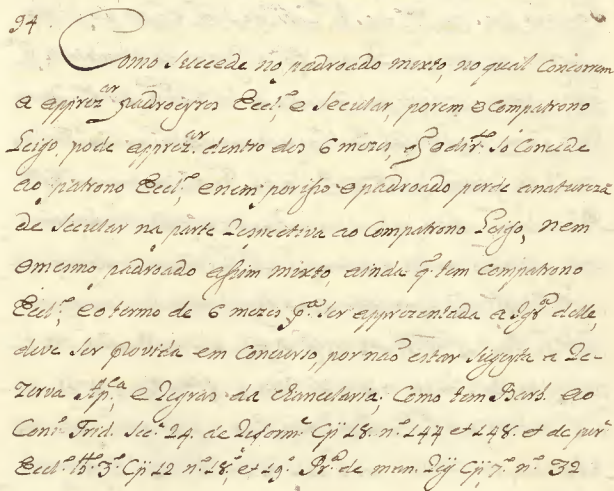 94
Como succede no padroado mixto, no qual concorrem
a aprez.ar padroeyros Eccl.º, e secular, porem o compatrono
Leigo pode aprez.ar dentro dos 6 mezes, q̃ o dir.to só concede
ao patrono Eccl.º, e nem por isso o padroado perde a natureza
de secular na parte respectiva ao Compatrono Leigo, nem
o mesmo padroado assim mixto, ainda q. tem compatrono
Eccl.º, e o termo de 6 mezes p.ª ser apprezentada a Igr.ª delle,
deve ser provida em concurso, por não estar sugeyta a Re-
zerva Ap.ca, e Regras da Chancelaria; Como tem Barb. ao
Conc.º Trid. Sec.ª 24. de Reform.e Cp. 18. n.º 144 et 148. et de jur.e
Eccl.º lb.º 3.º Cp. 12 n.º 18.º, et 19.º Pr.ª de man. Rey Cp. 7.º n.º 32